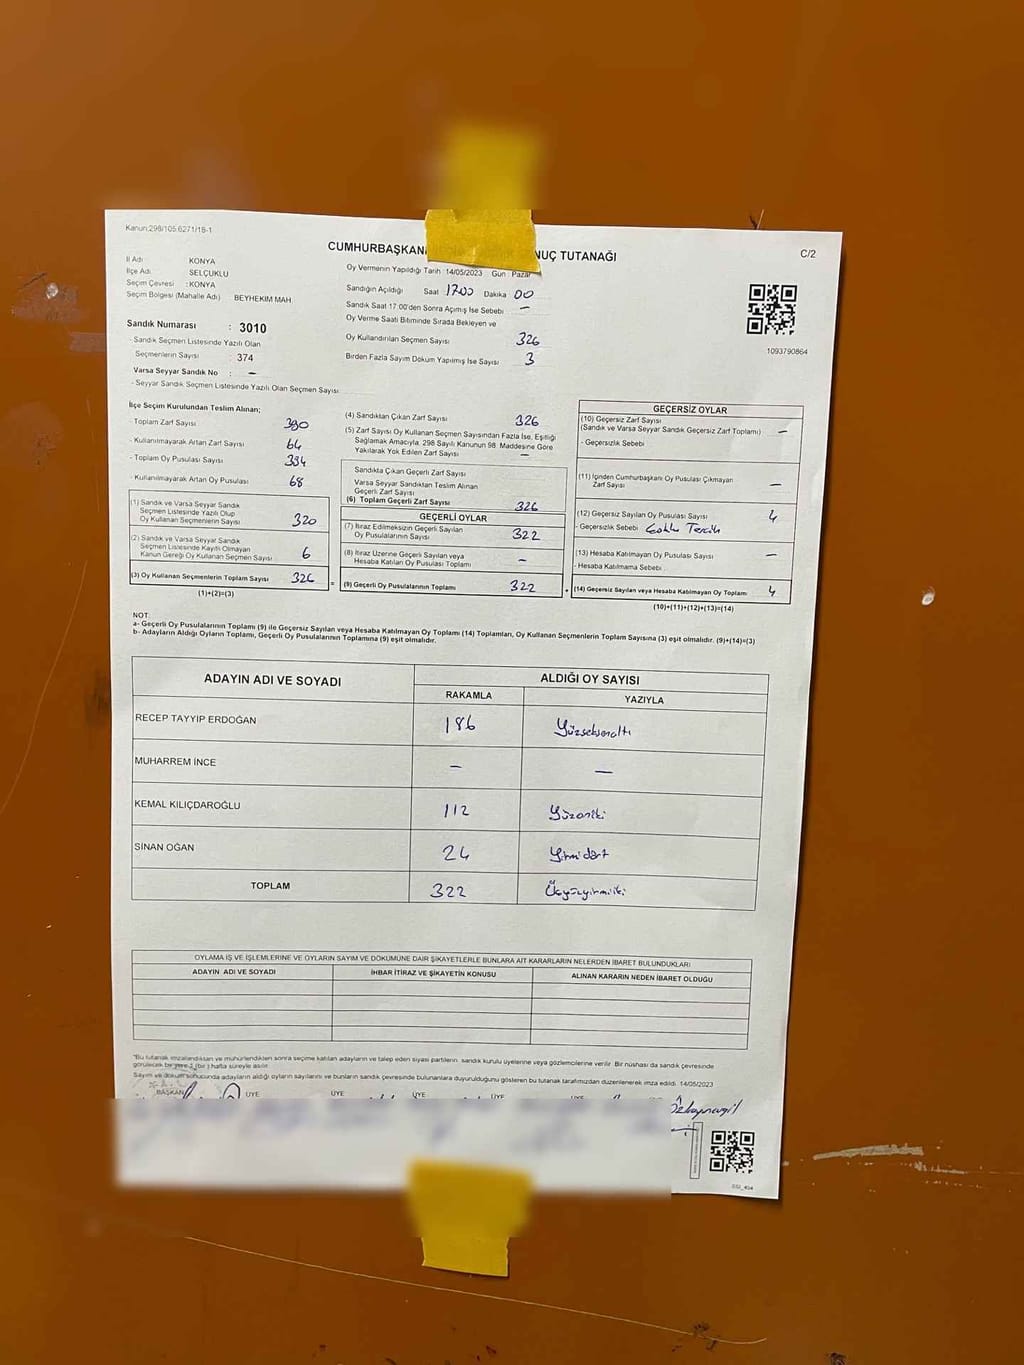 Kanun:298/105.6271/18-1
CUMHURBAŞKAN NUÇ TUTANAĞI
C/2
İl Adı : KONYA
İlçe Adı : SELÇUKLU
Seçim Çevresi : KONYA
Seçim Bölgesi (Mahalle Adı) BEYHEKİM MAH.
Sandık Numarası : 3010
- Sandık Seçmen Listesinde Yazılı Olan
Seçmenlerin Sayısı : 374
Varsa Seyyar Sandık No : –
- Seyyar Sandık Seçmen Listesinde Yazılı Olan Seçmen Sayısı
Oy Vermenin Yapıldığı Tarih : 14/05/2023 Gün : Pazar
Sandığın Açıldığı Saat 17:00 Dakika 00
Sandık Saat 17:00'den Sonra Açımış İse Sebebi –
Oy Verme Saati Bitiminde Sırada Bekleyen ve
Oy Kullandırılan Seçmen Sayısı 326
Birden Fazla Sayım Döküm Yapılmış İse Sayısı 3
1093790864
İlçe Seçim Kurulundan Teslim Alınan;
- Toplam Zarf Sayısı 390
- Kullanılmayarak Artan Zarf Sayısı 64
- Toplam Oy Pusulası Sayısı 394
- Kullanılmayarak Artan Oy Pusulası 68
(1) Sandık ve Varsa Seyyar Sandık
Seçmen Listesinde Yazılı Olup
Oy Kullanan Seçmenlerin Sayısı 320
(2) Sandık ve Varsa Seyyar Sandık
Seçmen Listesinde Kayıtlı Olmayan
Kanun Gereği Oy Kullanan Seçmen Sayısı 6
(3) Oy Kullanan Seçmenlerin Toplam Sayısı 326
(1)+(2)=(3)
(4) Sandıktan Çıkan Zarf Sayısı 326
(5) Zarf Sayısı Oy Kullanan Seçmen Sayısından Fazla İse, Eşitliği
Sağlamak Amacıyla, 298 Sayılı Kanunun 98. Maddesine Göre
Yakılarak Yok Edilen Zarf Sayısı –
Sandıkta Çıkan Geçerli Zarf Sayısı
Varsa Seyyar Sandıktan Teslim Alınan
Geçerli Zarf Sayısı
(6) Toplam Geçerli Zarf Sayısı 326
GEÇERLİ OYLAR
(7) İtiraz Edilmeksizin Geçerli Sayılan
Oy Pusulalarının Sayısı 322
(8) İtiraz Üzerine Geçerli Sayılan veya
Hesaba Katılan Oy Pusulası Toplamı –
= (9) Geçerli Oy Pusulalarının Toplamı 322
GEÇERSİZ OYLAR
(10) Geçersiz Zarf Sayısı
(Sandık ve Varsa Seyyar Sandık Geçersiz Zarf Toplamı) –
- Geçersizlik Sebebi
(11) İçinden Cumhurbaşkanı Oy Pusulası Çıkmayan
Zarf Sayısı –
(12) Geçersiz Sayılan Oy Pusulası Sayısı 4
- Geçersizlik Sebebi Çoklu Tercih
(13) Hesaba Katılmayan Oy Pusulası Sayısı –
- Hesaba Katılmama Sebebi
+ (14) Geçersiz Sayılan veya Hesaba Katılmayan Oy Toplamı 4
(10)+(11)+(12)+(13)=(14)
NOT:
a- Geçerli Oy Pusulalarının Toplamı (9) ile Geçersiz Sayılan veya Hesaba Katılmayan Oy Toplamı (14) Toplamları, Oy Kullanan Seçmenlerin Toplam Sayısına (3) eşit olmalıdır. (9)+(14)=(3)
b- Adayların Aldığı Oyların Toplamı, Geçerli Oy Pusulalarının Toplamına (9) eşit olmalıdır.
ADAYIN ADI VE SOYADI ALDIĞI OY SAYISI
RAKAMLA YAZIYLA
RECEP TAYYİP ERDOĞAN 186 Yüzseksenaltı
MUHARREM İNCE – –
KEMAL KILIÇDAROĞLU 112 Yüzoniki
SİNAN OĞAN 24 Yirmidört
TOPLAM 322 Üçyüzyirmiiki
OYLAMA İŞ VE İŞLEMLERİNE VE OYLARIN SAYIM VE DÖKÜMÜNE DAİR ŞİKAYETLERLE BUNLARA AİT KARARLARIN NELERDEN İBARET BULUNDUKLARI
ADAYIN ADI VE SOYADI İHBAR İTİRAZ VE ŞİKAYETİN KONUSU ALINAN KARARIN NEDEN İBARET OLDUĞU
"Bu tutanak imzalandıktan ve mühürlendikten sonra seçime katılan adayların ve talep eden siyasi partilerin, sandık kurulu üyelerine veya gözlemcilerine verilir. Bir nüshası da sandık çevresinde
görülecek bir yere 1 (bir) hafta süreyle asılır.
Sayım ve döküm sonucunda adayların aldığı oyların sayılarını ve bunların sandık çevresinde bulunanlara duyurulduğunu gösteren bu tutanak tarafımızdan düzenlenerek imza edildi. 14/05/2023
BAŞKAN ÜYE ÜYE ÜYE ÜYE